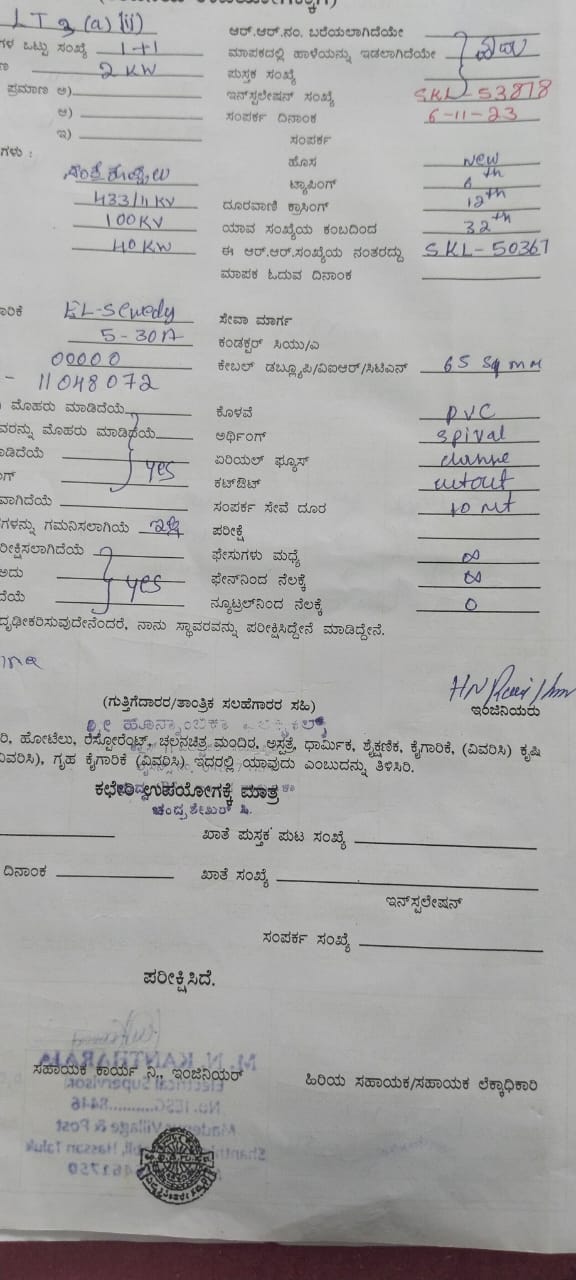 LT 3 (a) (ii)
ಆರ್.ಆರ್.ನಂ. ಬರೆಯಲಾಗಿದೆಯೇ
ಗಳ ಒಟ್ಟು ಸಂಖ್ಯೆ 1+1 ಮಾಪಕದಲ್ಲಿ ಹಾಳೆಯನ್ನು ಇಡಲಾಗಿದೆಯೇ
2 KW ಪುಸ್ತಕ ಸಂಖ್ಯೆ
ಪ್ರಮಾಣ ಅ) ಇನ್‌ಸ್ಟಲೇಷನ್ ಸಂಖ್ಯೆ SKL-53878
ಆ) ಸಂಪರ್ಕ ದಿನಾಂಕ 6-11-23
ಇ) ಸಂಪರ್ಕ
ಗಳು : ಹೊಸ New
ಟ್ಯಾಪಿಂಗ್ 6th
433/11 KV ದೂರವಾಣಿ ಕ್ರಾಸಿಂಗ್ 12th
100 KV ಯಾವ ಸಂಖ್ಯೆಯ ಕಂಬದಿಂದ 32th
40 KW ಈ ಆರ್.ಆರ್.ಸಂಖ್ಯೆಯ ನಂತರದ್ದು SKL-50367
ಮಾಪಕ ಓದುವ ದಿನಾಂಕ
ಸೇವಾ ಮಾರ್ಗ
5-30A ಕಂಡಕ್ಟರ್ ಸಿಯು/ಎ
00000 ಕೇಬಲ್ ಡಬ್ಲ್ಯೂಪಿ/ವಿಐಆರ್/ಸಿಟಿಎಸ್ 65 Sq mm
- 11048072
ಮೊಹರು ಮಾಡಿದೆಯೆ ಕೊಳವೆ PVC
ವರನ್ನು ಮೊಹರು ಮಾಡಿದೆಯೆ ಅರ್ಥಿಂಗ್ spival
ಾಡಿದೆಯೆ ಏರಿಯಲ್ ಫ್ಯೂಸ್
ಗ್ yes ಕಟ್‌ಔಟ್ cutout
ವಾಗಿದೆಯೆ ಸಂಪರ್ಕ ಸೇವೆ ದೂರ 10 Mt
ಗಳನ್ನು ಗಮನಿಸಲಾಗಿಯೆ ಪರೀಕ್ಷೆ
ರೀಕ್ಷಿಸಲಾಗಿದೆಯೆ ಫೇಸುಗಳು ಮಧ್ಯೆ ∞
ಅದು yes ಫೇಸ್‌ನಿಂದ ನೆಲಕ್ಕೆ ∞
ದೆಯೆ ನ್ಯೂಟ್ರಲ್‌ನಿಂದ ನೆಲಕ್ಕೆ 0
ದೃಢೀಕರಿಸುವುದೇನೆಂದರೆ, ನಾನು ಸ್ಥಾವರವನ್ನು ಪರೀಕ್ಷಿಸಿದ್ದೇನೆ ಮಾಡಿದ್ದೇನೆ.
(ಗುತ್ತಿಗೆದಾರರ/ತಾಂತ್ರಿಕ ಸಲಹೆಗಾರರ ಸಹಿ) ಇಂಜಿನಿಯರು
ರಿ, ಹೋಟೆಲು, ರೆಸ್ಟೋರೆಂಟ್, ಚಲನಚಿತ್ರ ಮಂದಿರ, ಅಸ್ಪತ್ರೆ, ಧಾರ್ಮಿಕ, ಶೈಕ್ಷಣಿಕ, ಕೈಗಾರಿಕೆ, (ವಿವರಿಸಿ) ಕೃಷಿ
ವಿವರಿಸಿ), ಗೃಹ ಕೈಗಾರಿಕೆ (ವಿವರಿಸಿ) ಇದರಲ್ಲಿ ಯಾವುದು ಎಂಬುದನ್ನು ತಿಳಿಸಿರಿ.
ಕಛೇರಿ ಉಪಯೋಗಕ್ಕೆ ಮಾತ್ರ
ಚಂದ್ರಶೇಖರ್ ಸಿ.
ಖಾತೆ ಪುಸ್ತಕ ಪುಟ ಸಂಖ್ಯೆ
ದಿನಾಂಕ ಖಾತೆ ಸಂಖ್ಯೆ
ಇನ್‌ಸ್ಟಲೇಷನ್
ಸಂಪರ್ಕ ಸಂಖ್ಯೆ
ಪರೀಕ್ಷಿಸಿದೆ.
ಸಹಾಯಕ ಕಾರ್ಯ ನಿ., ಇಂಜಿನಿಯರ್ ಹಿರಿಯ ಸಹಾಯಕ/ಸಹಾಯಕ ಲೆಕ್ಕಾಧಿಕಾರಿ